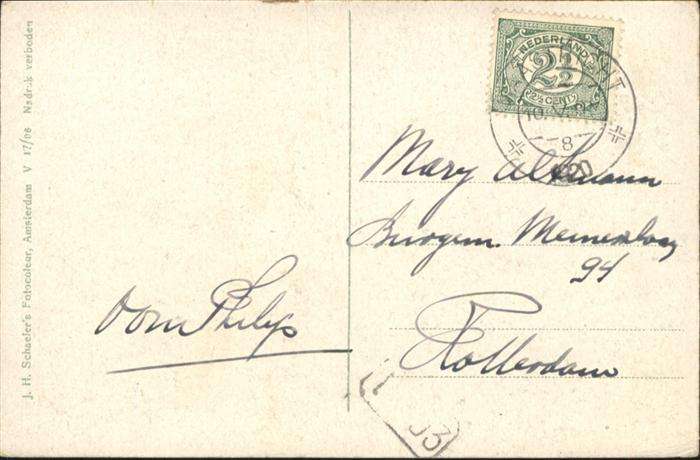 J. H. Schaefer's Fotocoleur, Amsterdam V 17/06 Nadruk verboden
NEDERLAND
2½
2½ CENT
8
Mary Altmann
Burgem.
94
Rotterdam
Oom Philip
33